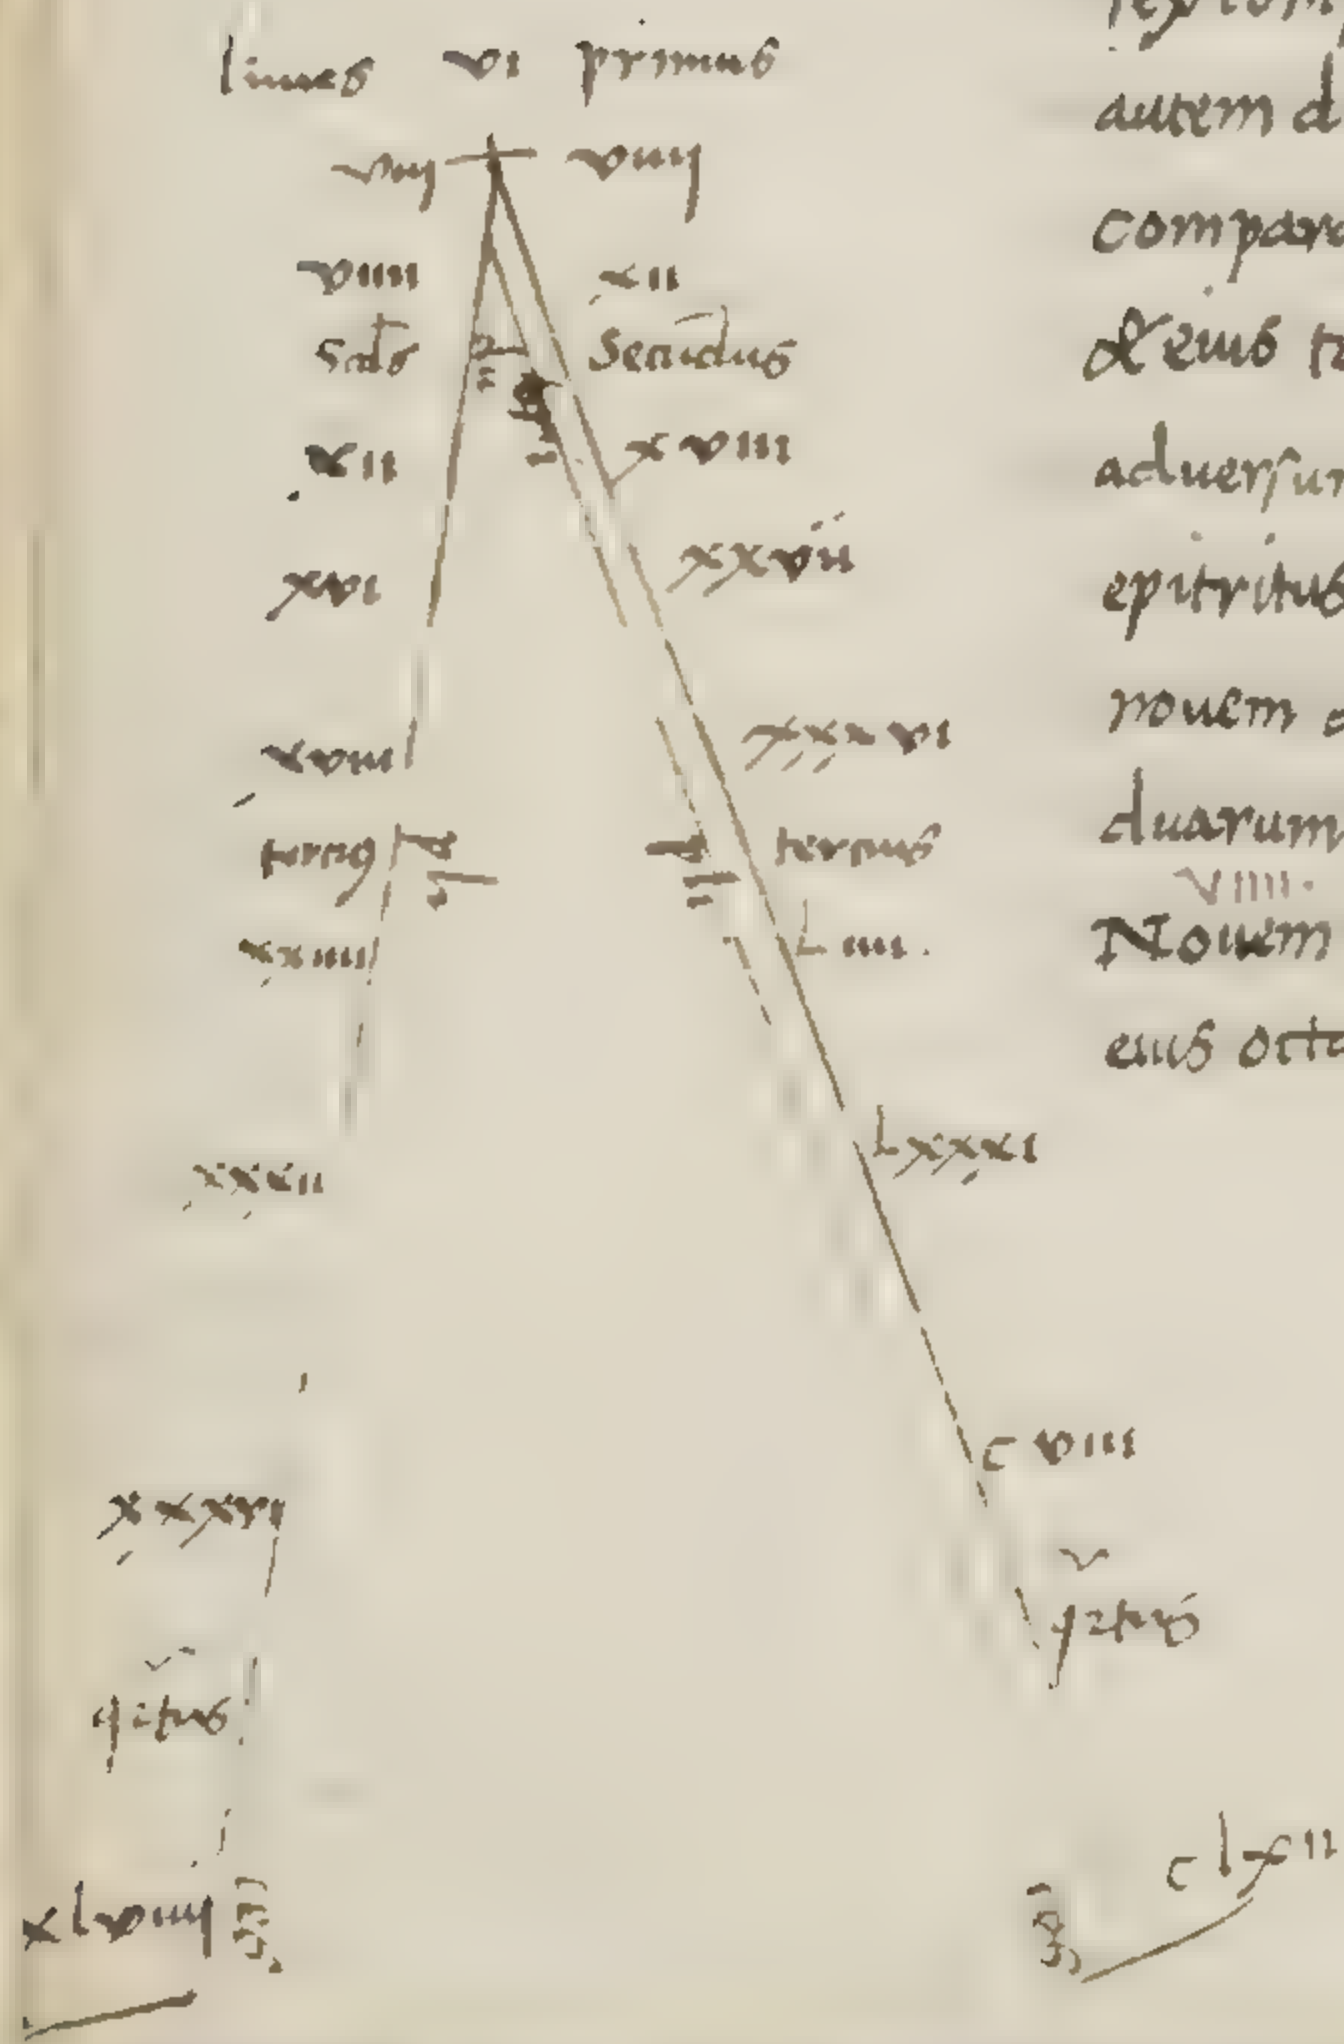 limes vi primus
viiij viiij
viiii xii
Scds Secudus
xii xviii
xvi xxvii
xviii xxxvi
tercius tercius
xxiiii Liiii.
xxxii Lxxxi
xxxvi cviii
qrtus qrtus
xlviiij clxii
autem d
compara
& eius t
aduersu
epitritus
nouem
duarum
viiii.
Nouem
eius octa